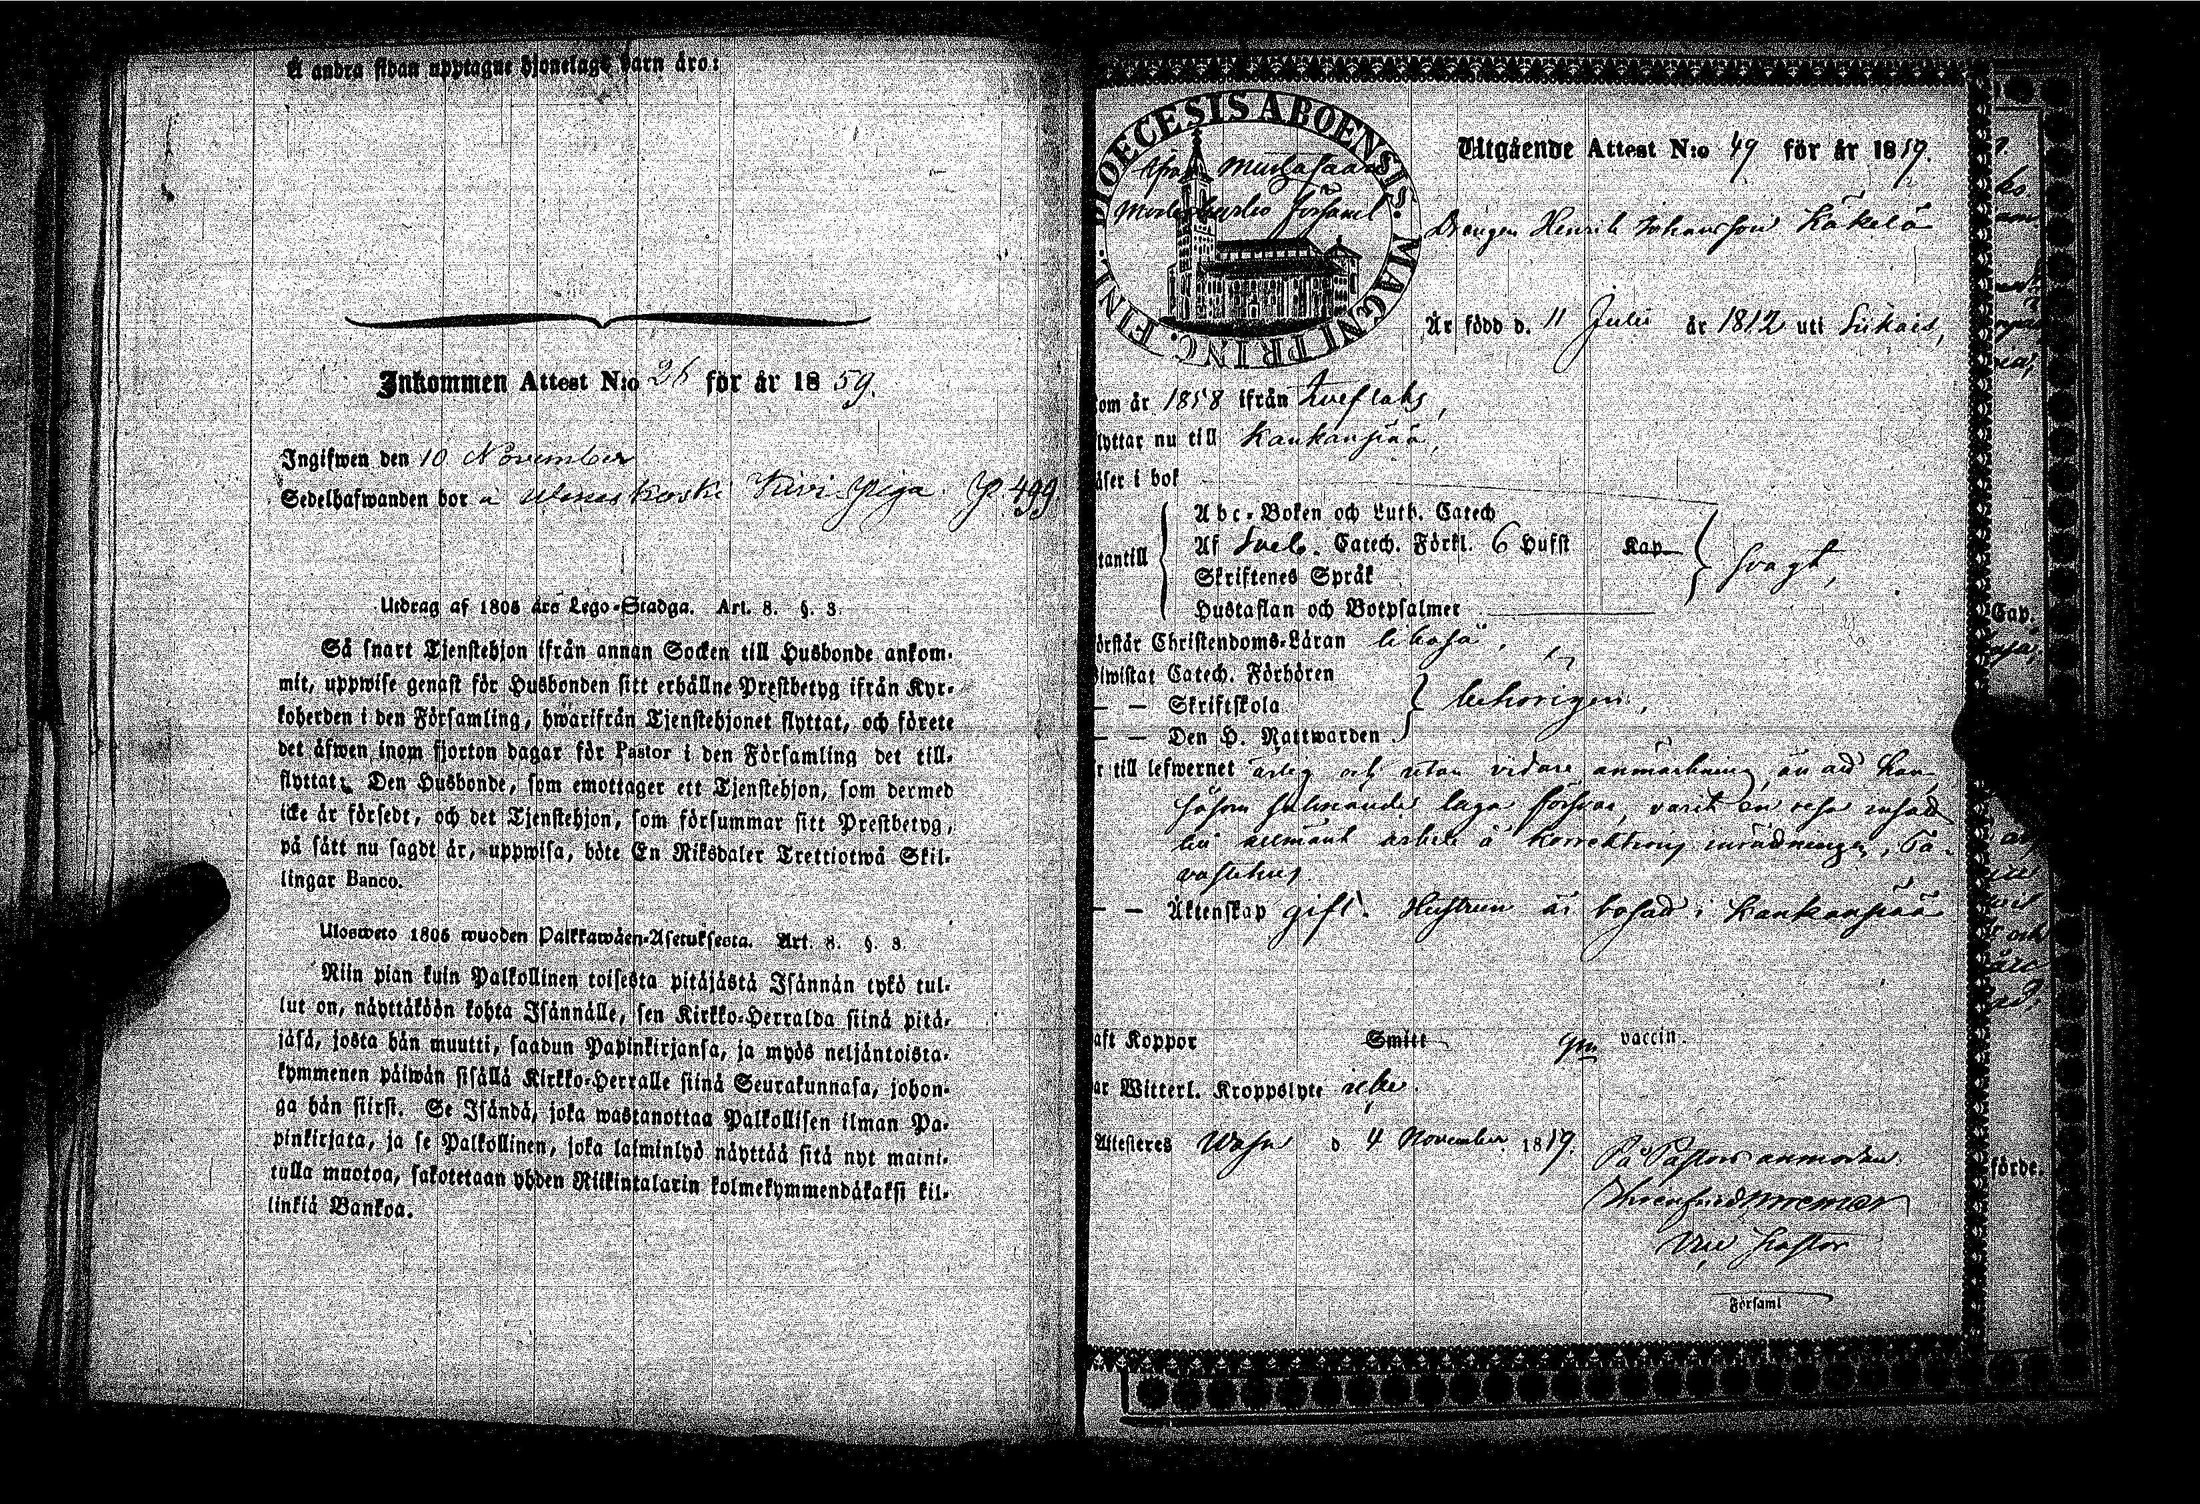 Å andra sidan upptagne hjonelags barn äro:
Inkommen Attest N:o 26 för år 1859.
Ingifwen den 10 November
Sedelhafwanden bor å Kivi P. 499
Utdrag af 1805 års Lego-Stadga. Art. 8. §. 3.
Så snart Tjenstehjon ifrån annan Socken till Husbonde ankom-
mit, uppwise genast för Husbonden sitt erhållne Prestbetyg ifrån Kyr-
koherden i den Församling, hwarifrån Tjenstehjonet flyttat, och förete
det äfwen inom fjorton dagar för Pastor i den Församling det till-
flyttat. Den Husbonde, som emottager ett Tjenstehjon, som dermed
icke är försedt, och det Tjenstehjon, som försummar sitt Prestbetyg,
på sätt nu sagdt är, uppwisa, böte En Riksdaler Trettiotwå Skil-
lingar Banco.
Ulosweto 1805 wuoden Palkkawäen-Asetuksesta. Art. 8. §. 3.
Niin pian kuin Palkollinen toisesta pitäjästä Isännän tykö tul-
lut on, näyttäköön kohta Isännälle, sen Kirkko-Herralda siinä pitä-
jäsä, josta hän muutti, saadun Papinkirjansa, ja myös neljäntoista-
kymmenen päiwän sisällä Kirkko-Herralle siinä Seurakunnasa, johon-
ga hän siirsi. Se Isändä, joka wastanottaa Palkollisen ilman Pa-
pinkirjata, ja se Palkollinen, joka laiminlyö näyttää sitä nyt maini-
tulla muotoa, sakotetaan yhden Riikintalarin kolmekymmendäkaksi kil-
linkiä Bankoa.
DIOECESIS ABOENSIS. MAGNI PRINC. FINL.
Mustasaari
Moderkyrko Förs̄aml
Utgående Attest N:o 49 för år 1859.
Drängen Henrik Johansson Käkelä
Är född d. 11 Julii år 1812 uti Siikais,
kom år 1858 ifrån Kveflaks,
flyttar nu till Kankanpää,
läser i bok
Abc-Boken och Luth. Catech
utantill Af Sveb. Catech. Förkl. 6 Hufst Kap svagt,
Skriftenes Språk
Hustaflan och Botpsalmer
förstår Christendoms-Läran
biwistat Catech. Förhören
— — Skriftskola behörigen,
— — Den H. Nattwarden
är till lefwernet ärlig och utan vidare anmärkning än att han,
såsom saknande laga försvar, varit en
till allmänt arbete å Korrektions inrättningen i Ta-
vastehus.
— — Äktenskap gift. Hustrun är bosatt i Kankanpää
haft Koppor Smitt gm vaccin.
har Witterl. Kroppslyte icke.
Attesteres Wasa d. 4 November 1859.
På Pastors anmodan
Vice Pastor
Församl
Cap.
förde.